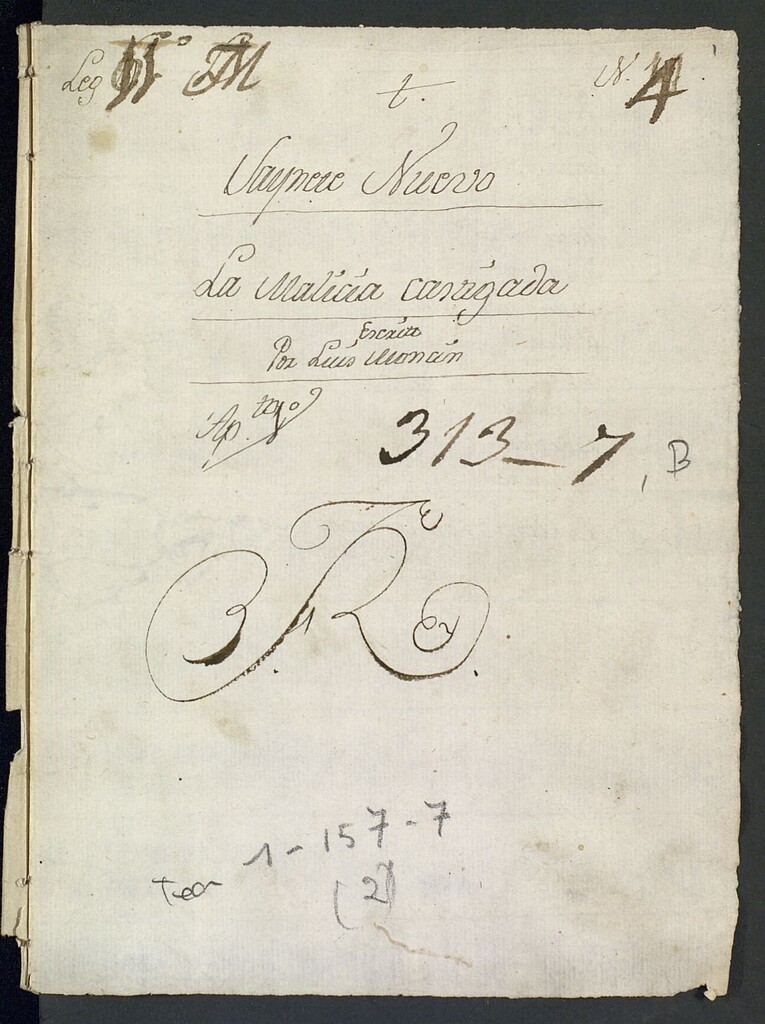 Leg
N. 4
t.
Saynete Nuevo
La Malicia castigada
Escrito
Por Luis Moncin
Ap.to 1º
313-7, B
1-157-7
Tea
(2)